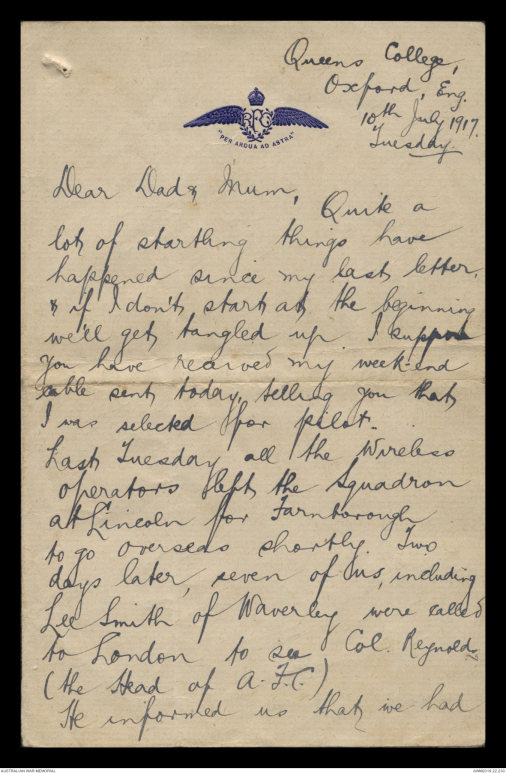 Queens College,
Oxford, Eng.
10th July 1917.
Tuesday.
RFC
"PER ARDUA AD ASTRA"
Dear Dad & Mum,
Quite a
lot of startling things have
happened since my last letter,
& if I don't start at the beginning
we'll get tangled up. I suppose
you have received my week-end
cable sent today, telling you that
I was selected for pilot.
Last Tuesday all the wireless
operators left the Squadron
at Lincoln for Farnborough
to go overseas shortly. Two
days later, seven of us, including
Lee Smith of Waverley were called
to London to see Col. Reynolds
(the Head of A.F.C.)
He informed us that we had
AUSTRALIAN WAR MEMORIAL